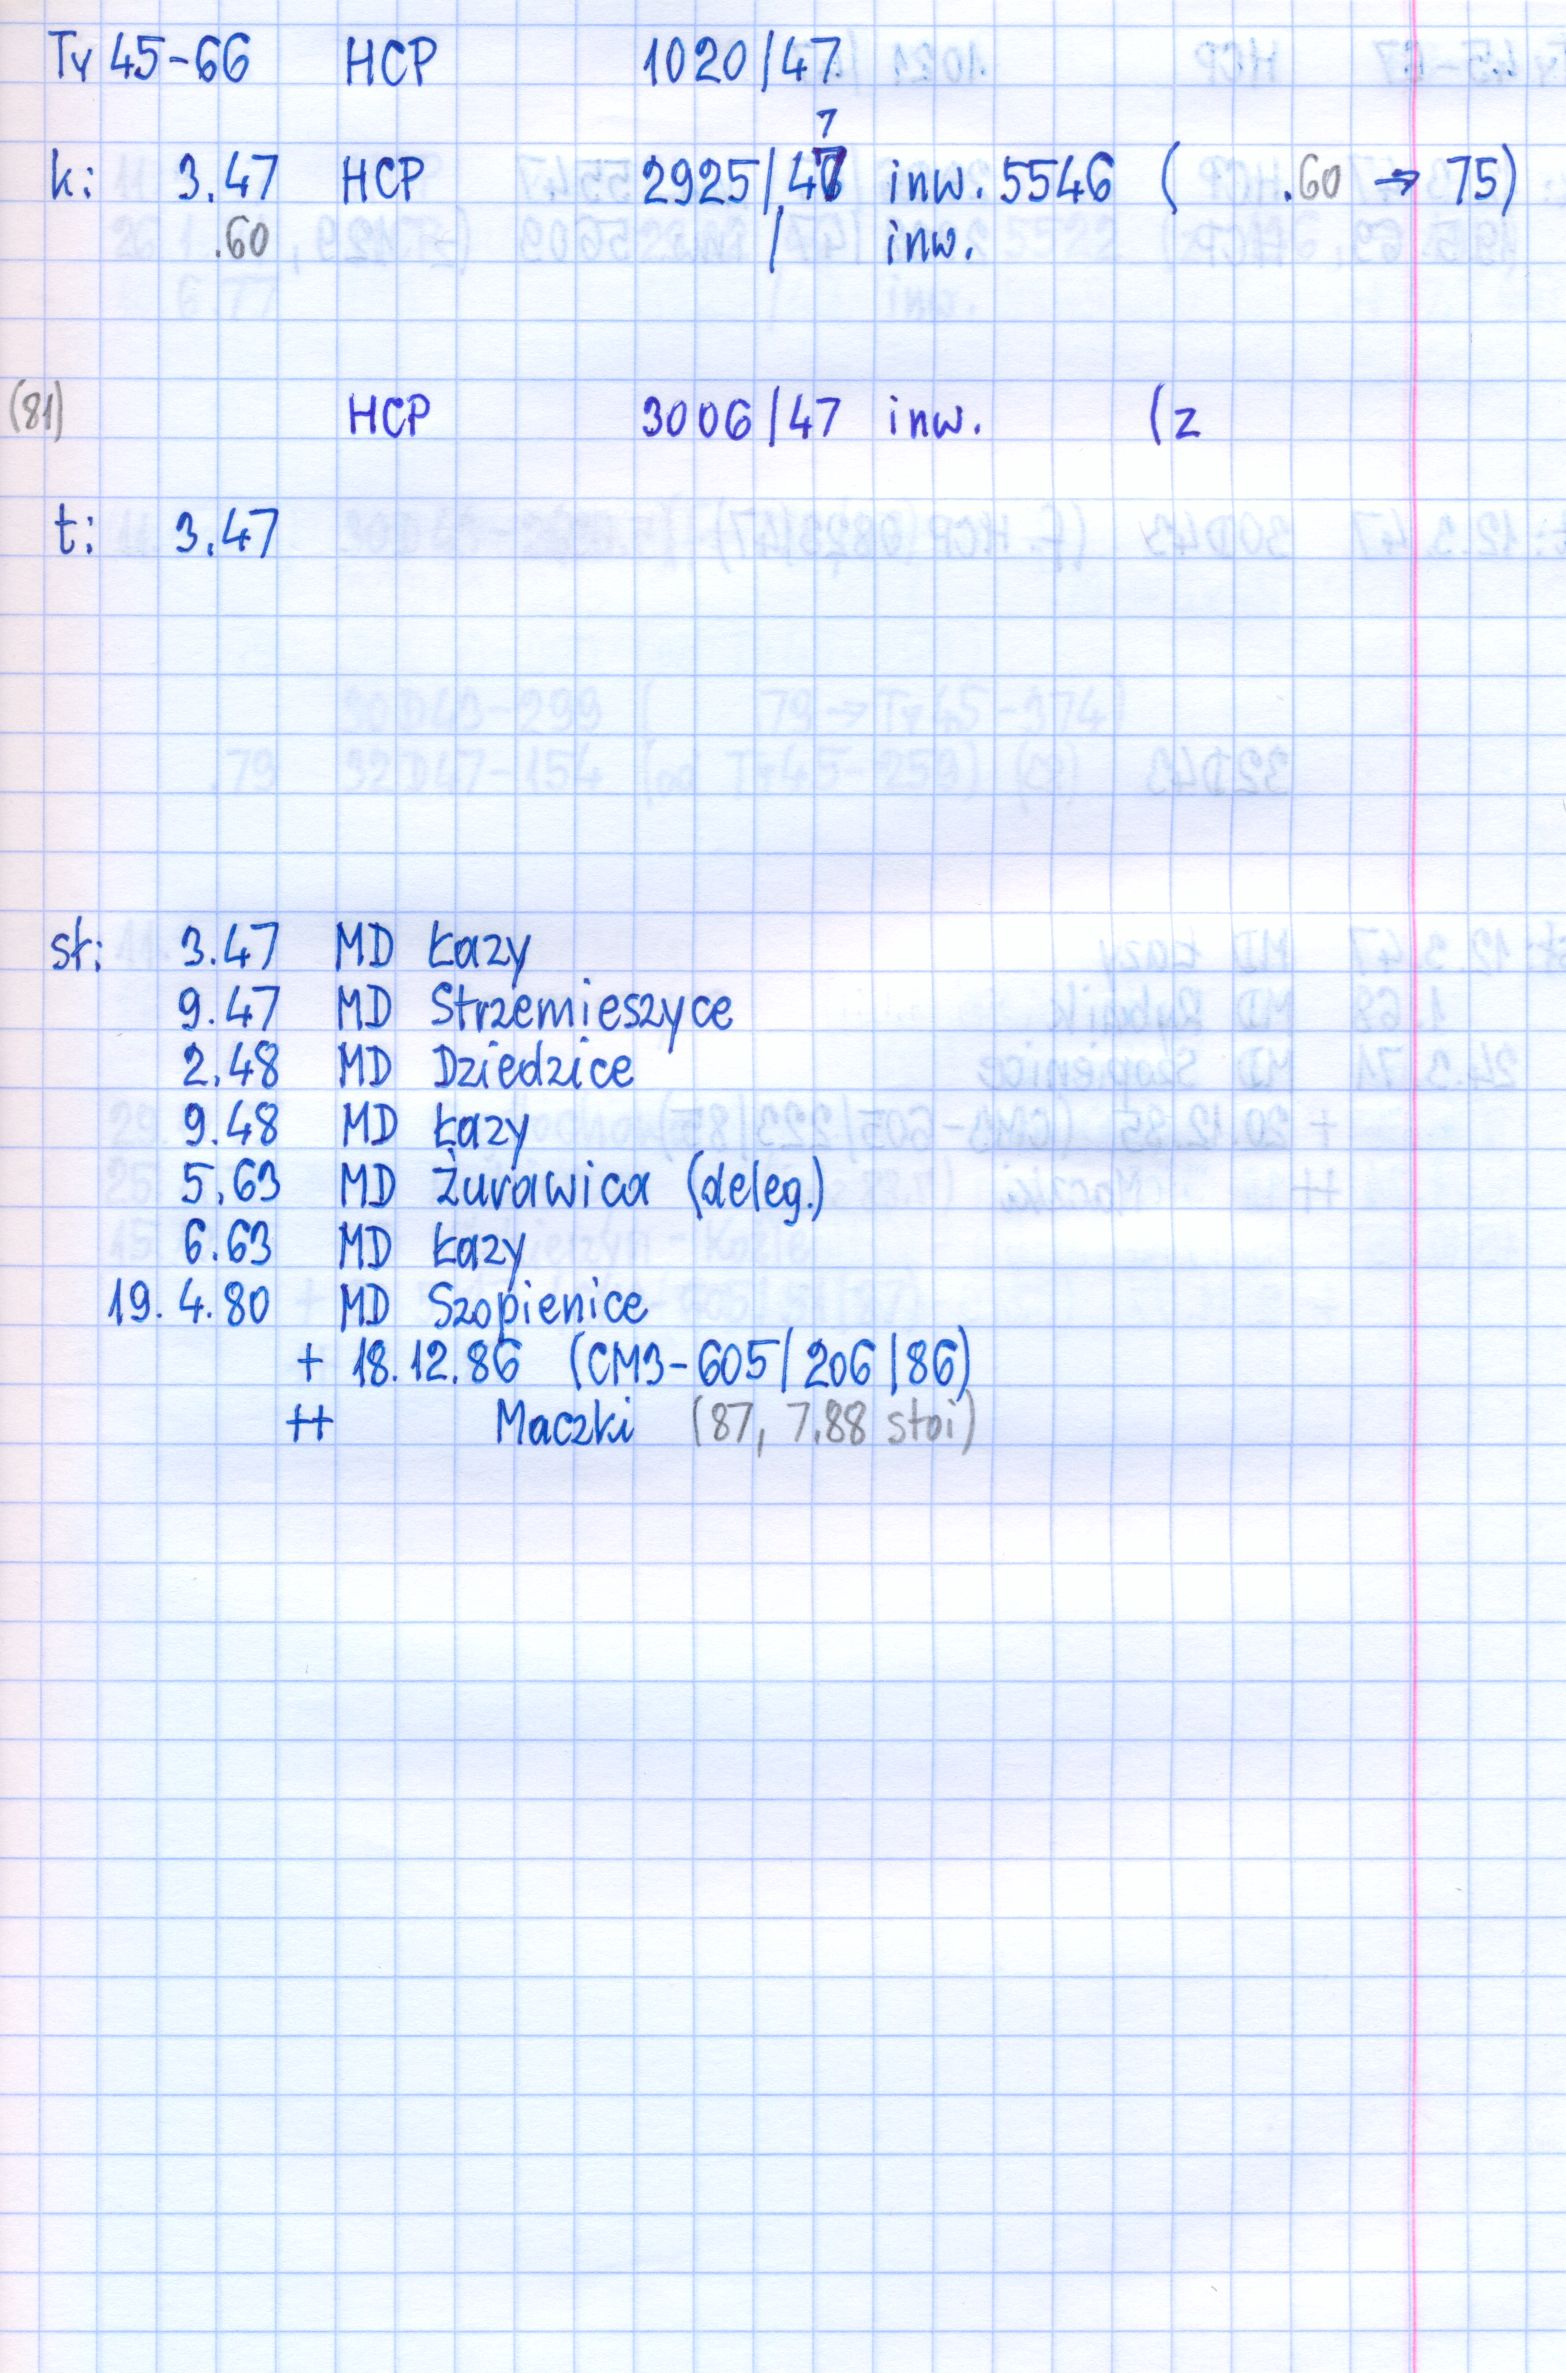 Ty 45-66 HCP 1020/47
7
k: 3.47 HCP 2925/47 inw. 5546 ( .60 → 75)
.60 / inw.
(81) HCP 3006/47 inw. (z
t: 3.47
st: 3.47 MD Łazy
9.47 MD Strzemieszyce
2.48 MD Dziedzice
9.48 MD Łazy
5.63 MD Żurawica (deleg.)
6.63 MD Łazy
19. 4.80 MD Szopienice
+ 18.12.86 (CM3-605/206/86)
++ Maczki (87, 7.88 stoi)